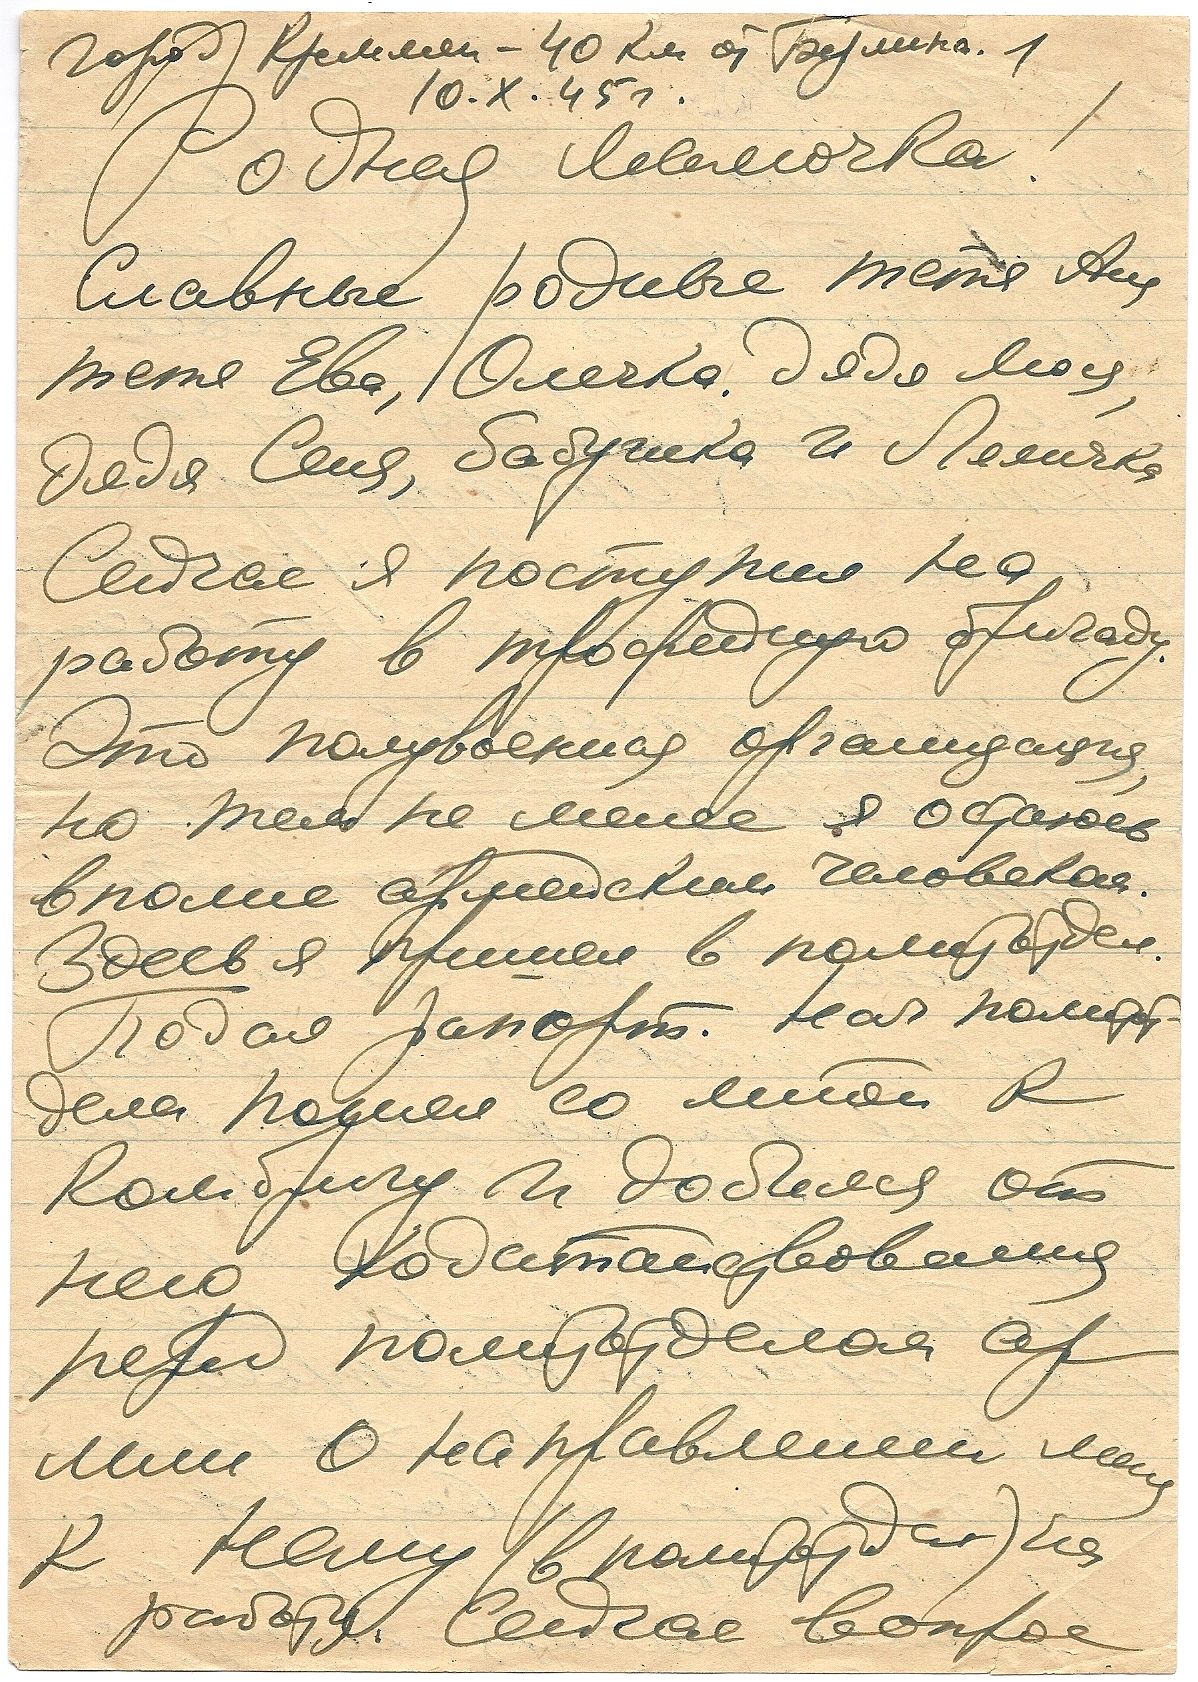 город Креммен - 40 км от Берлина. 1
10.X.45г.
Родная Мамочка!
Славные родные тетя Аня
тетя Ева, Олечка, дядя Мося,
дядя Сеня, бабушка и Леличка
Сейчас я поступил на
работу в трофейную бригаду.
Это полувоенная организация,
но тем не менее я остаюсь
вполне армейским человеком.
Здесь я пришел в политотдел.
Подал рапорт. Нач полит-
дела пошел со мной к
комбригу и добился от
него ходатайствования
перед политотделом ар
мии о направлении меня
к нему (в политотдел) на
работу. Сейчас вопрос